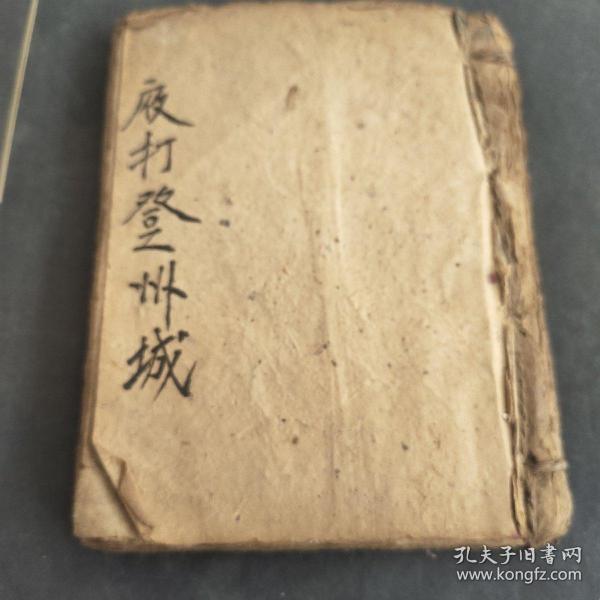 夜打登州城
孔夫子旧書网
www.kongfz.com